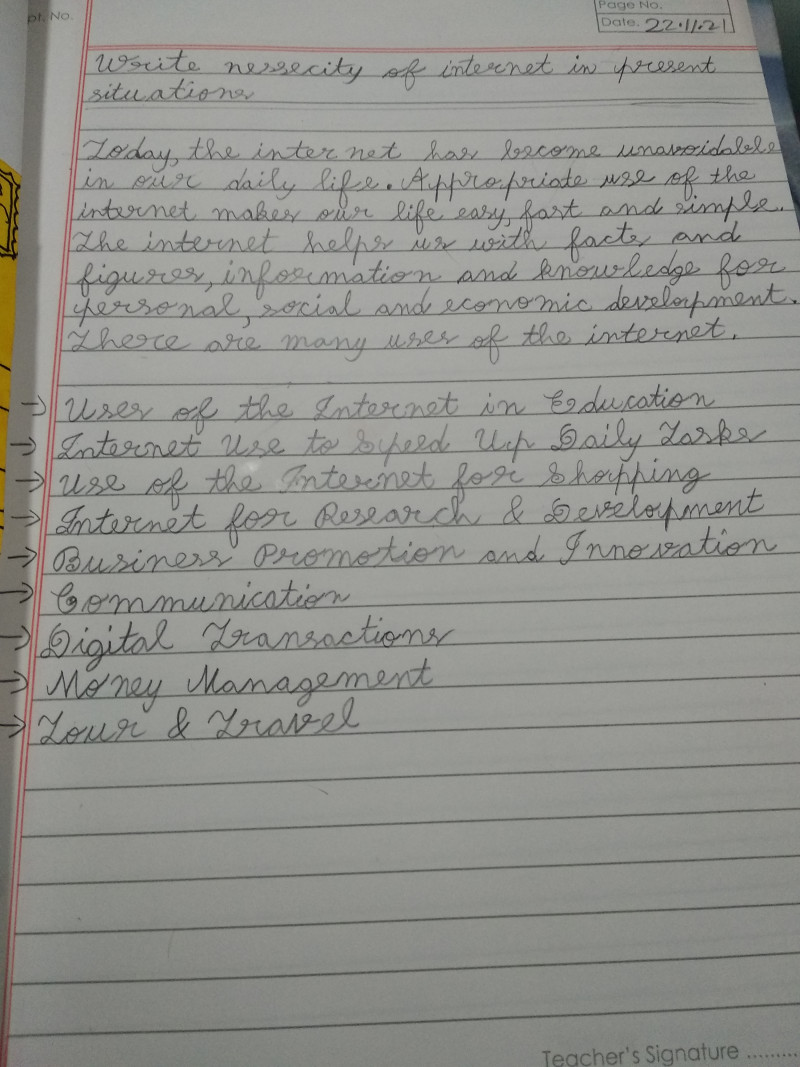 pt. No.
Page No.
Date. 22.11.21
Write nessecity of internet in present
situations
Today, the internet has become unavoidable
in our daily life. Appropriate use of the
internet makes our life easy, fast and simple.
The internet helps us with facts and
figures, information and knowledge for
personal, social and economic development.
There are many uses of the internet.
→ Uses of the Internet in Education
→ Internet Use to Speed Up Daily Tasks
→ Use of the Internet for Shopping
→ Internet for Research & Development
→ Business Promotion and Innovation
→ Communication
→ Digital Transactions
→ Money Management
→ Tour & Travel
Teacher's Signature .........